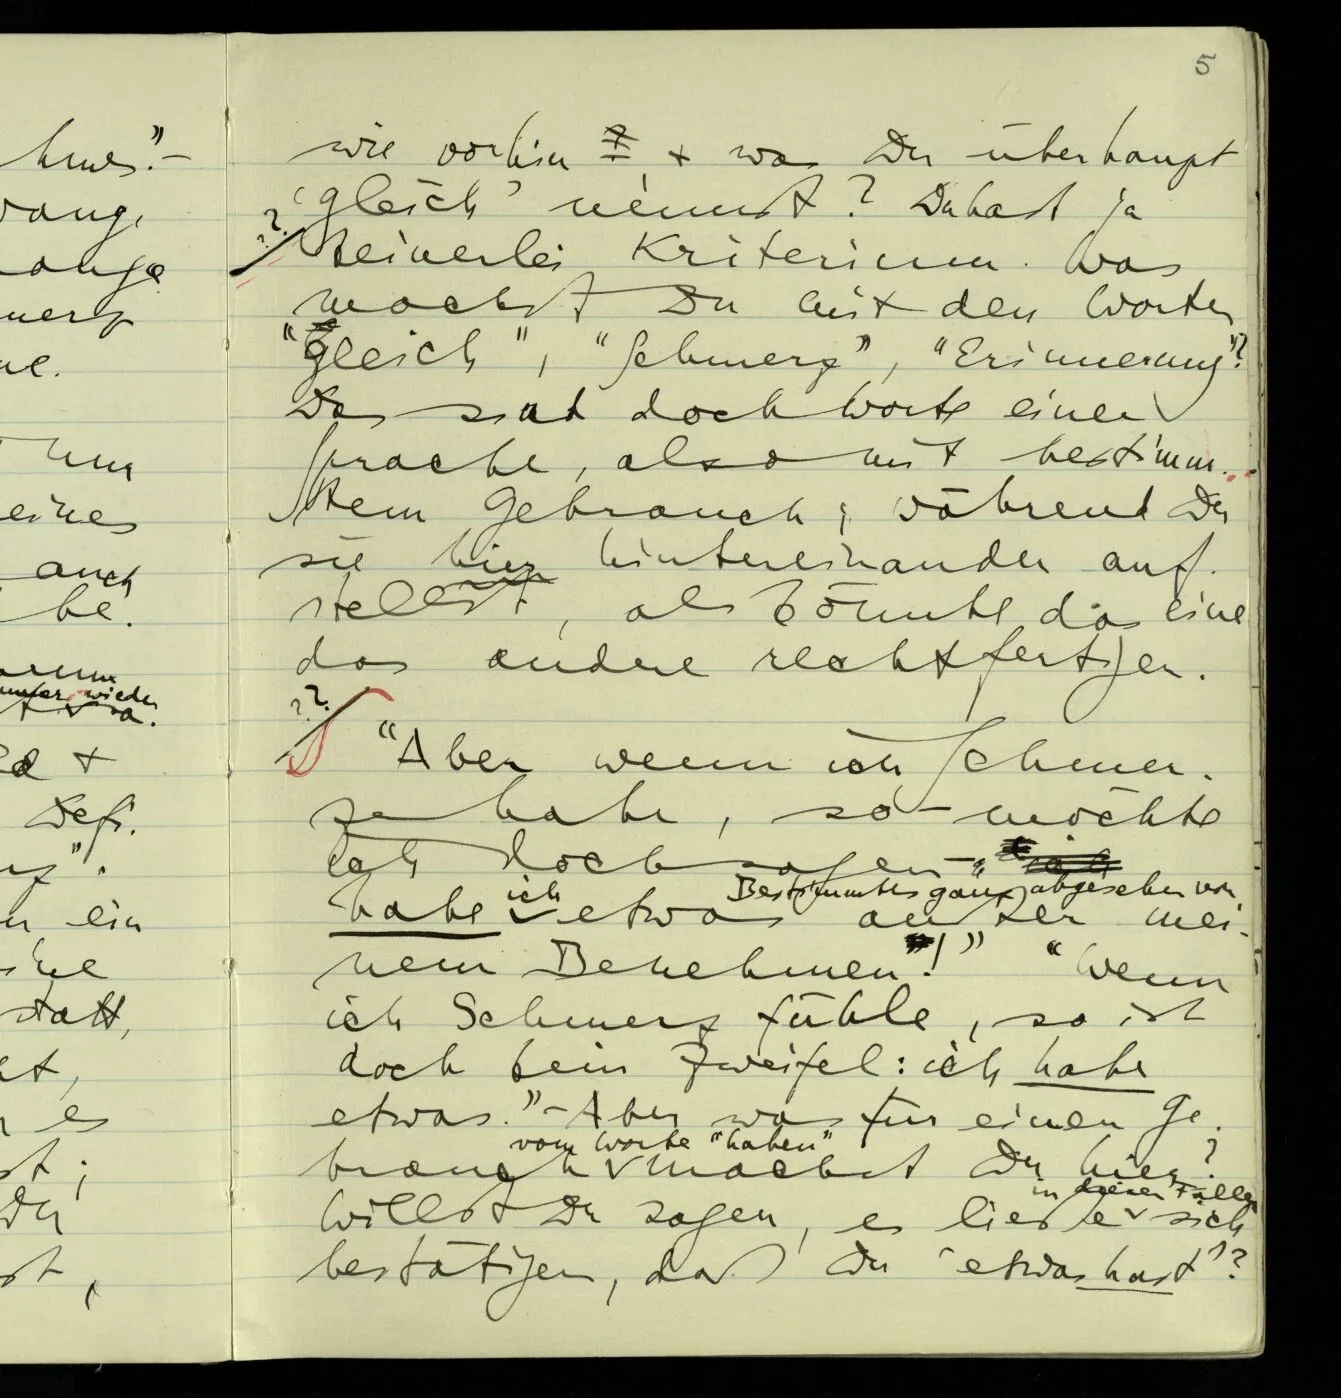 5
hmes".–
auch
be.
immer wieder
Defi.
ein
statt,
es
Du
wie vorhin ?, + was Du überhaupt
'gleich' nennst? Du hast ja
?? keinerlei Kriterium. Was
machst Du mit den Worten
"gleich", "Schmerz", "Erinnerung"?
Das sind doch Worte einer
Sprache, also mit bestimm-
tem Gebrauch; während Du
sie hier hintereinander auf-
stellst, als könnte das eine
das andere rechtfertigen.
?? "Aber wenn ich Schmer-
ze habe, so möchte
ich doch sagen – " ich
habe ich etwas Bestimmtes ganz abgesehen von außer mei-
nem Benehmen!" "Wenn
ich Schmerz fühle, so ist
doch kein Zweifel: ich habe
etwas." – Aber was für einen Ge-
brauch vom Worte "haben" machst Du hier?
Willst Du sagen, es ließe in diesem Falle sich
bestätigen, daß Du 'etwas hast'?